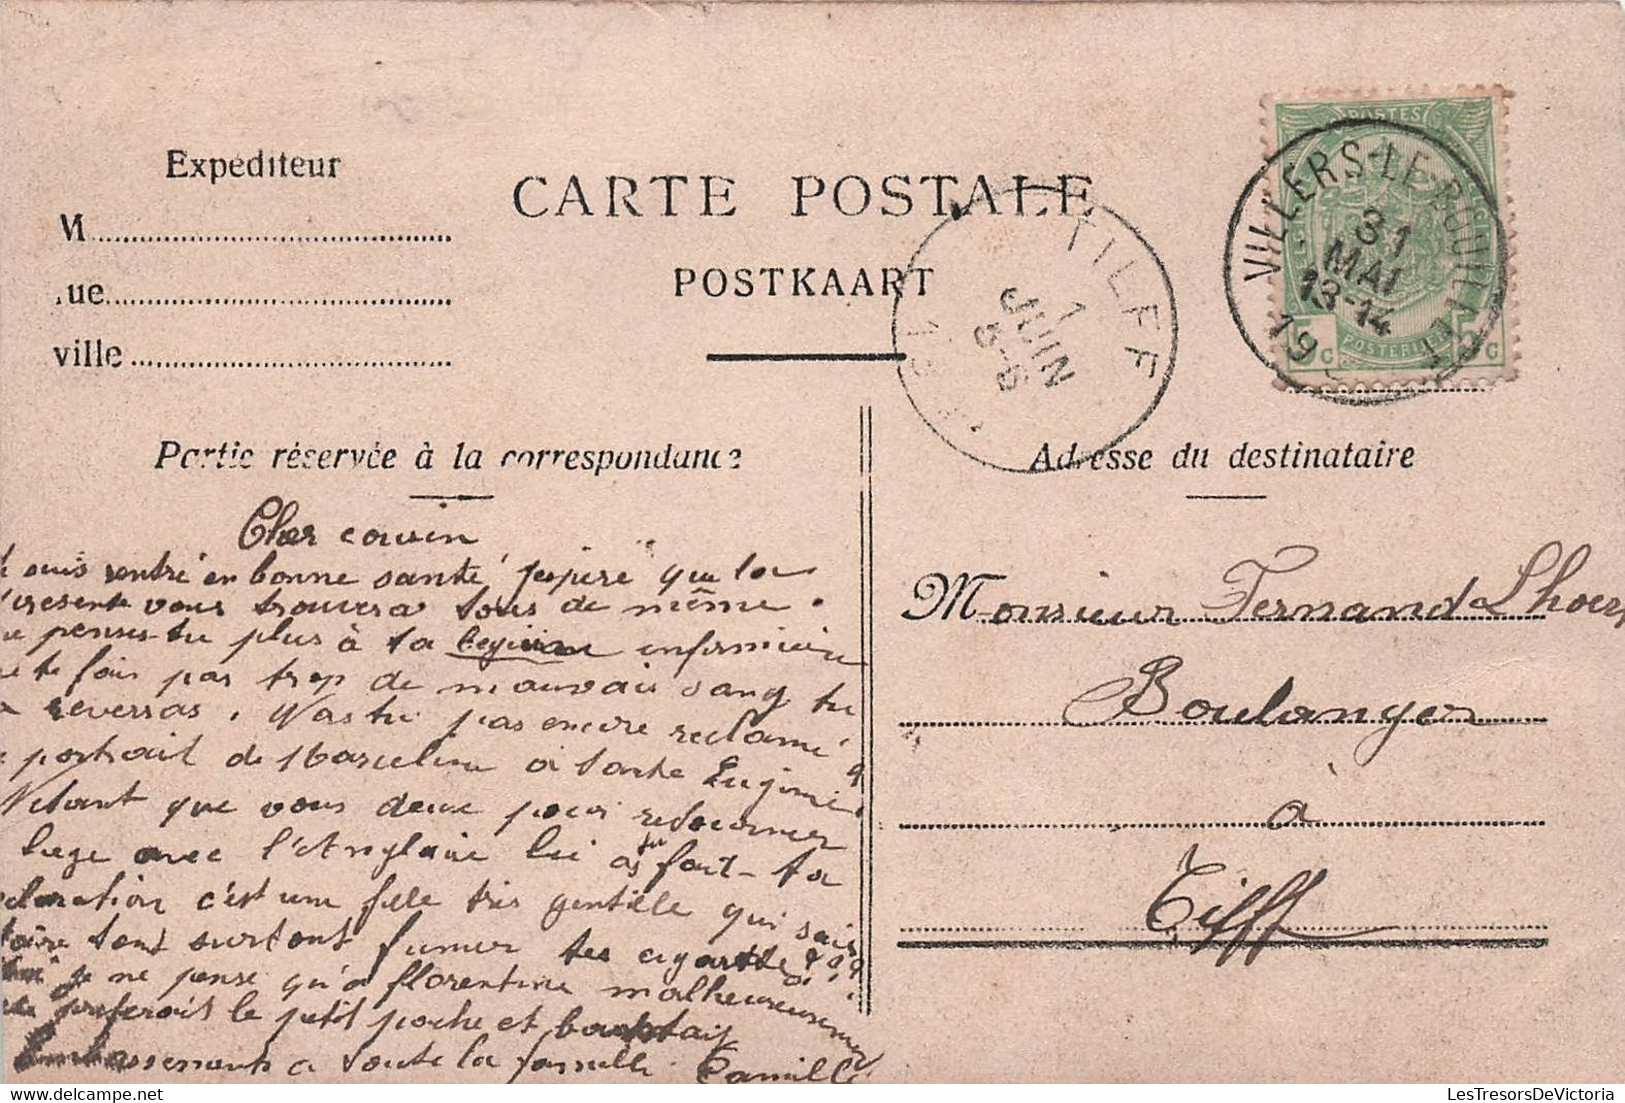 Expéditeur
M
rue
ville
CARTE POSTALE
POSTKAART
TILFF
1
JUIN
5-6
POSTES
VILLERS-LE-BOUILLET
31
MAI
13-14
19
5 c
5 c
Partie réservée à la correspondance
Cher cousin
suis rentré en bonne santé j'espère que la
présente vous trouvera tous de même.
penses-tu plus à ta infirmière
te fais pas trop de mauvais sang tu
reverras. N'as tu pas encore reclamé
portrait de Marceline à tante Eugénie?
que vous deux pour retourner
liege avec l'Anglaise lui as tu fait ta
declaration c'est une fille très gentille qui sais
faire tout surtout fumer tes cigarettes???
je ne pense qu'a florentine malheureusement
preferait le petit poche et
a toute la famille. Camille
Adresse du destinataire
Monsieur Fernand Lhoest
Boulanger
à
Tilff
LesTresorsDeVictoria